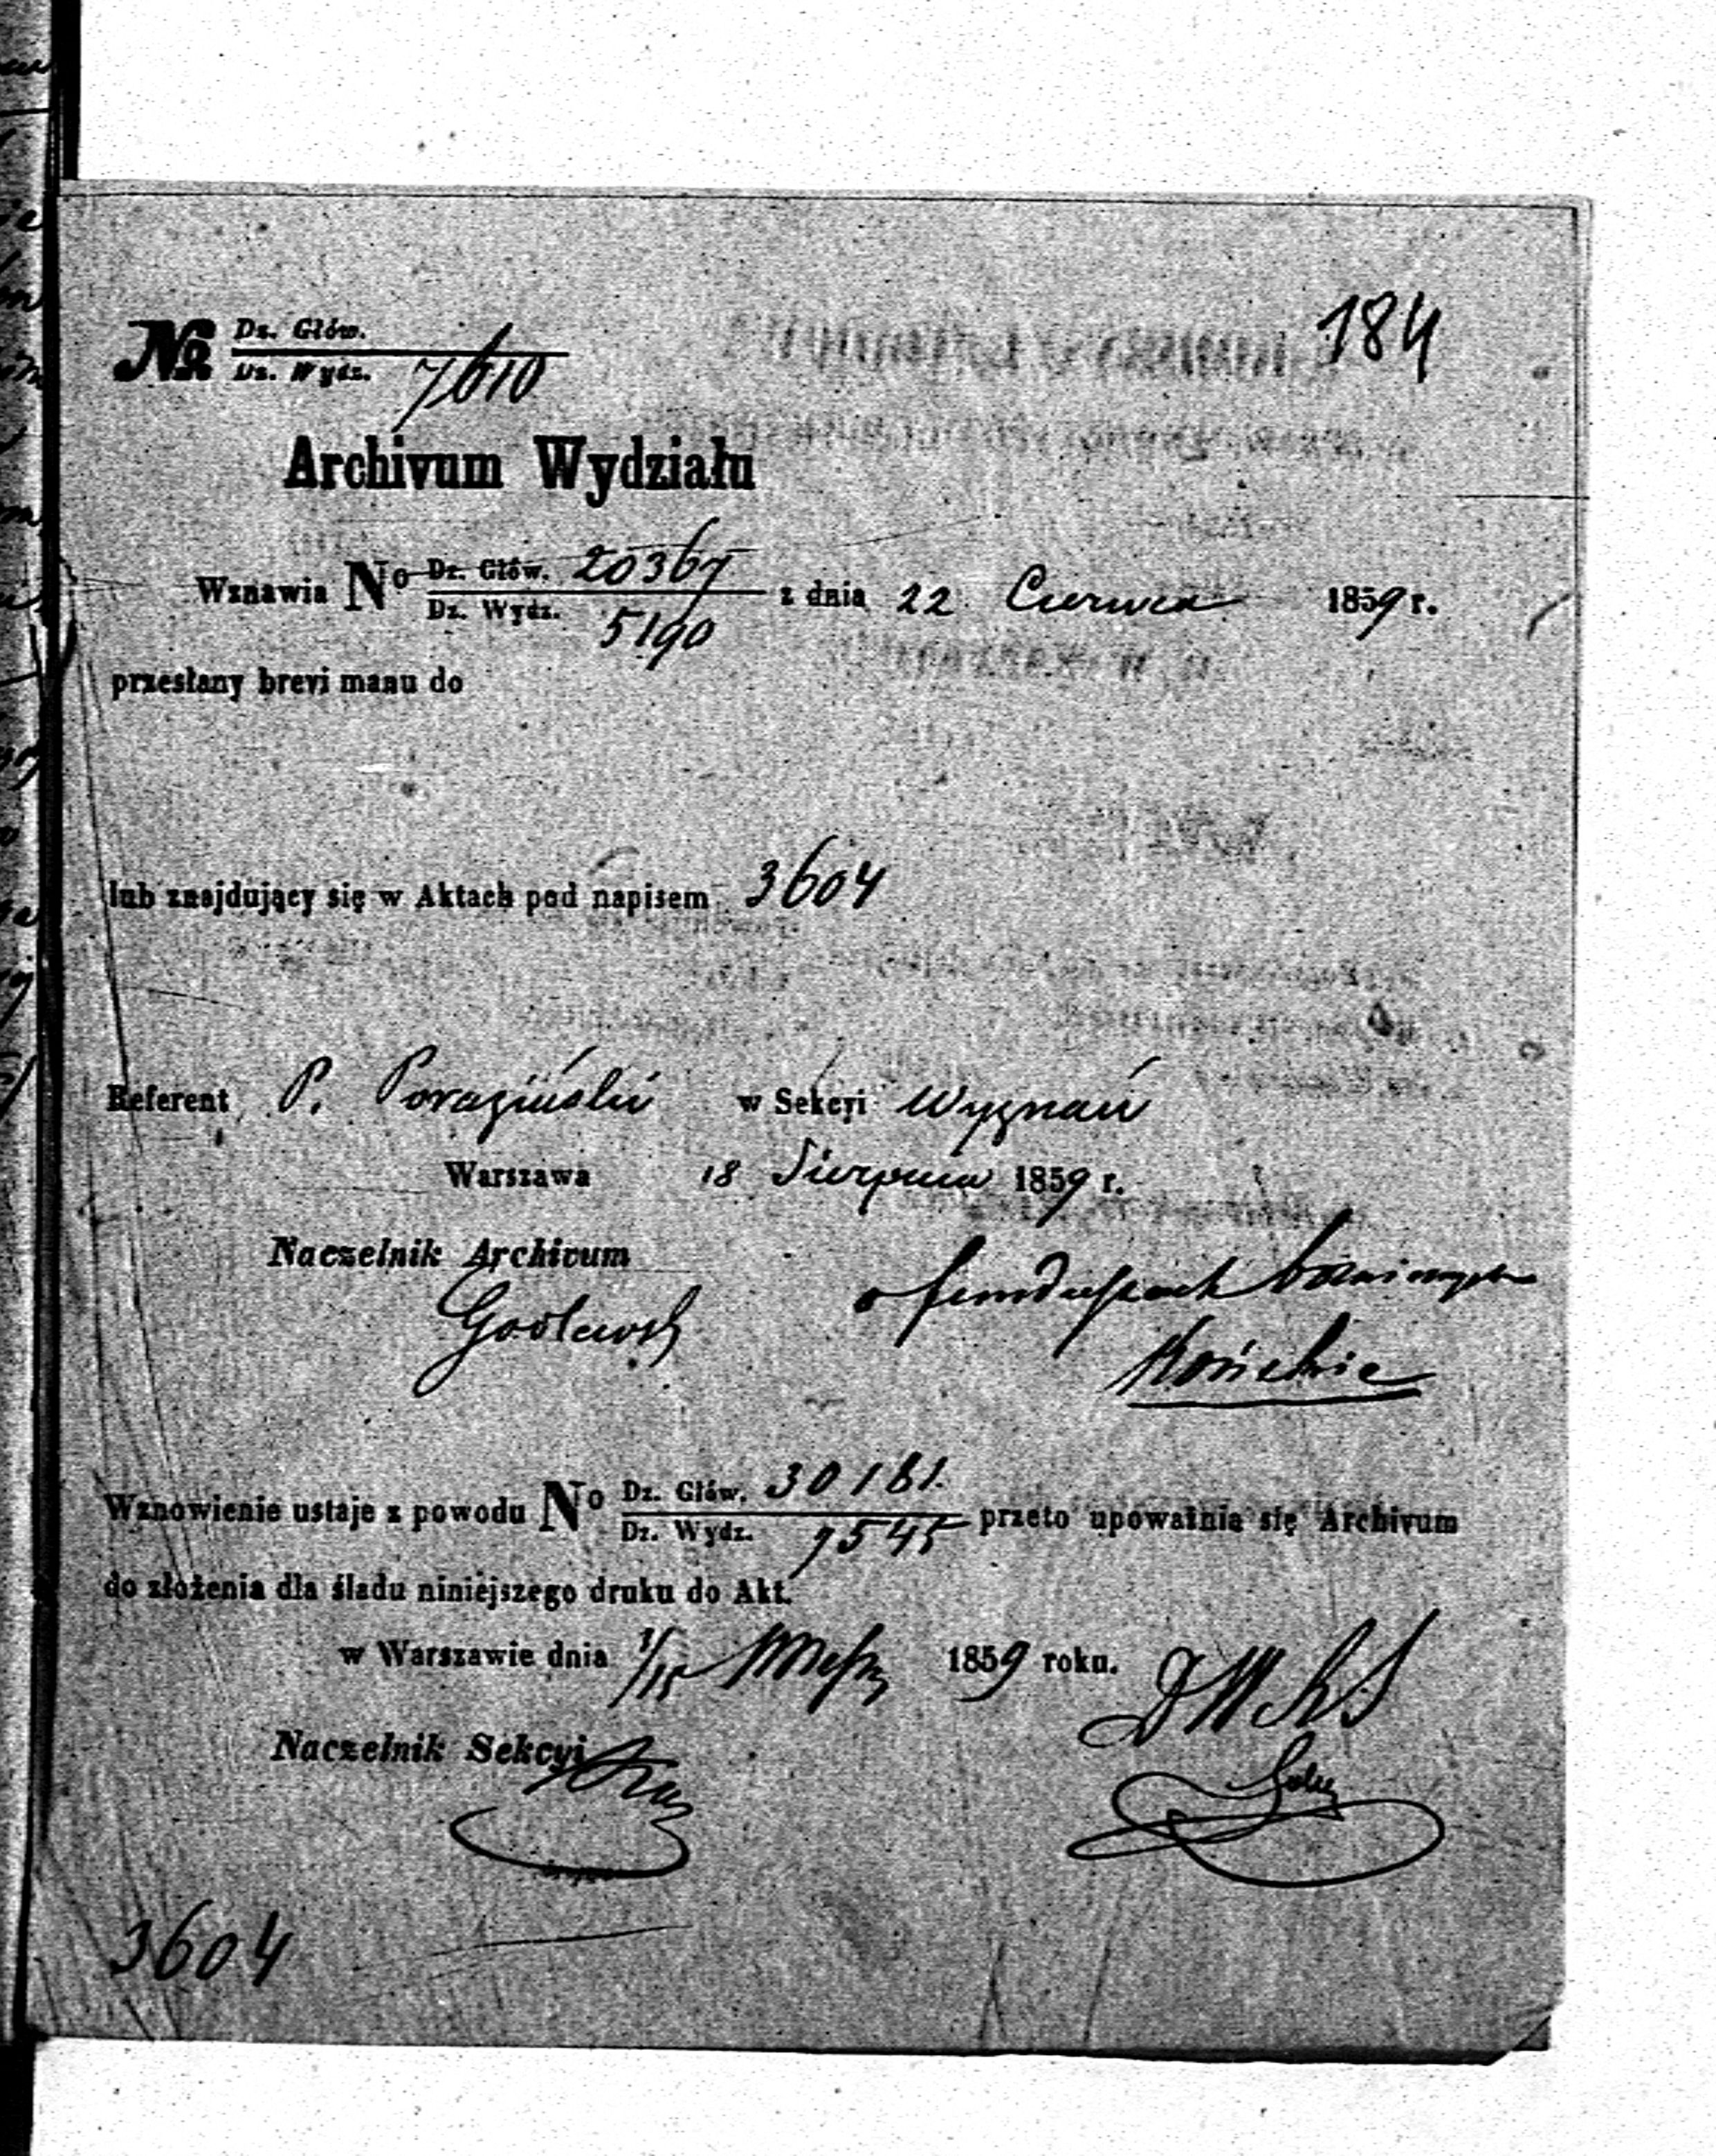 184
№ Dz. Głów.
Dz. Wydz. 7610
Archivum Wydziału
Wznawia No Dz. Głów. 20367 z dnia 22 Czerwca 1859 r.
Dz. Wydz. 5190
przesłany brevi manu do
lub znajdujący się w Aktach pod napisem 3604
Referent P. Poraziński w Sekcyi Wyznań
Warszawa 18 Sierpnia 1859 r.
Naczelnik Archivum
Godlewsk
o funduszach
Końskie
Wznowienie ustaje z powodu No Dz. Głów. 30161. przeto upoważnia się Archivum
Dz. Wydz. 7545
do złożenia dla śladu niniejszego druku do Akt.
w Warszawie dnia 1/15 1859 roku.
Naczelnik Sekcyi
3604